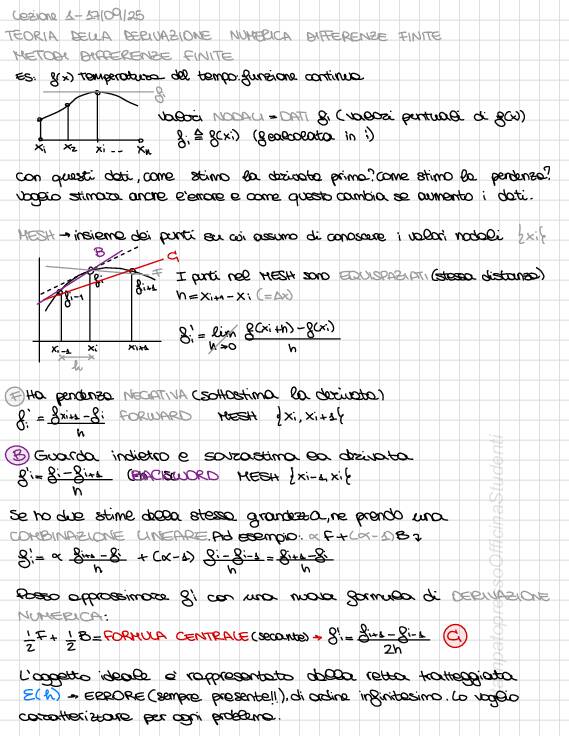 Lezione 1-17/09/25
TEORIA DELLA DERIVAZIONE NUMERICA DIFFERENZE FINITE
METODI DIFFERENZE FINITE
ES: f(x) temperatura del tempo: funzione continua
fi
valori NODALI = DATI fi (valori puntuali di f(x))
fi ≙ f(xi) (f calcolata in i)
x1 x2 xi ... xn
con questi dati, come stimo la derivata prima? come stimo la pendenza?
voglio stimare anche l'errore e come questo cambia se aumento i dati.
MESH → insieme dei punti su cui assumo di conoscere i valori nodali {xi}
B C F
fi-1 fi fi+1
I punti nel MESH sono EQUISPAZIATI (stessa distanza)
h = xi+1 - xi (=Δx)
f'i = lim h→0 f(xi+h) - f(xi) / h
xi-1 xi xi+1
h
F Ha pendenza NEGATIVA (sottostima la derivata)
f'i = fxi+1 - fi / h FORWARD MESH {xi, xi+1}
B Guarda indietro e sovrastima la derivata
f'i = fi - fi+1 / h (BACKWORD MESH {xi-1, xi}
Se ho due stime della stessa grandezza, ne prendo una
COMBINAZIONE LINEARE. Ad esempio: αF + (α-1)B
f'i = α fi+1 - fi / h + (α-1) fi - fi-1 / h = fi+1 - fi / h
Posso approssimare f'i con una nuova formula di DERIVAZIONE
NUMERICA:
1/2 F + 1/2 B = FORMULA CENTRALE (secante) → f'i = fi+1 - fi-1 / 2h C
L'oggetto ideale è rappresentato dalla retta tratteggiata
E(h) → ERRORE (sempre presente!!), di ordine infinitesimo. Lo voglio
caratterizzare per ogni problema.